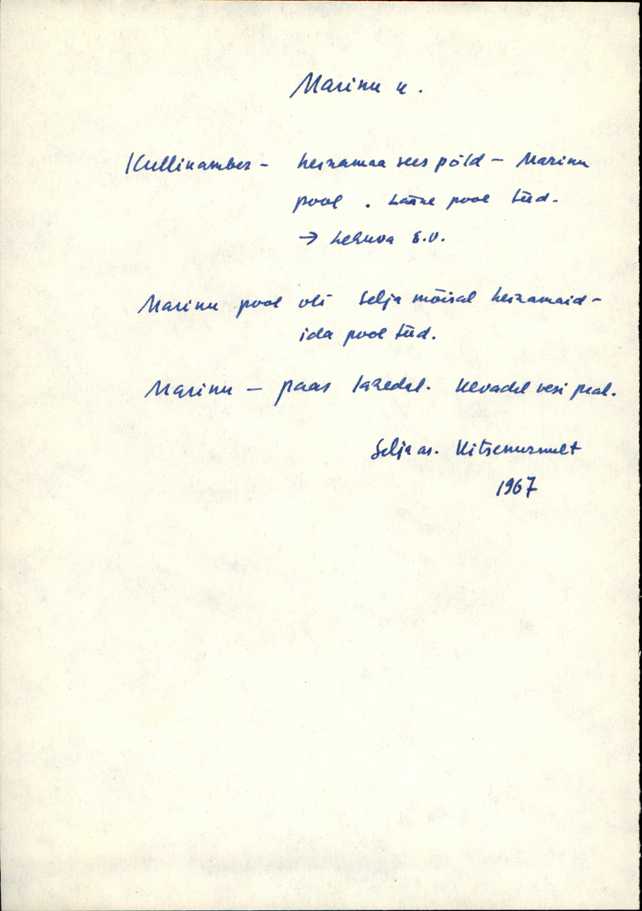 Marinu k.
Kullikamber - heinamaa sees põld - Marinu
pool. Lääne pool teed.
→ Lehuva
Marinu pool oli Selja mõisal heinamaid -
ida pool teed.
Marinu - paas lagedal. Kevadel vesi peal.
Selja as. Kitsemurult
1967